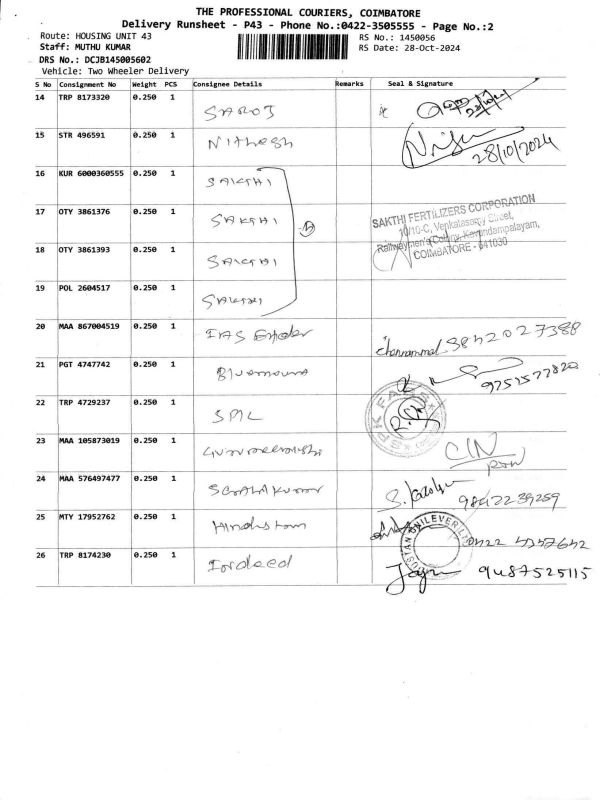 THE PROFESSIONAL COURIERS, COIMBATORE
Delivery Runsheet - P43 - Phone No.:0422-3505555 - Page No.:2
Route: HOUSING UNIT 43 RS No.: 1450056
Staff: MUTHU KUMAR RS Date: 28-Oct-2024
DRS No.: DCJB145005602
Vehicle: Two Wheeler Delivery
S No Consignment No Weight PCS Consignee Details Remarks Seal & Signature
14 TRP 8173320 0.250 1 SAROJ
15 STR 496591 0.250 1 Nithesh 28/10/2024
16 KUR 6000360555 0.250 1 SAKTHI
17 OTY 3861376 0.250 1 SAKTHI
SAKTHI FERTILIZERS CORPORATION
10/10-C, Venkatasamy Street,
Railwaymen's Colony, Kavundampalayam,
COIMBATORE - 641030
18 OTY 3861393 0.250 1 SAKTHI
19 POL 2604517 0.250 1 SAKTHI
20 MAA 867004519 0.250 1 IAS 9842027388
21 PGT 4747742 0.250 1 9752577820
22 TRP 4729237 0.250 1 SPIL
23 MAA 105873019 0.250 1
24 MAA 576497477 0.250 1 9842239259
25 MTY 17952762 0.250 1 Hindustan
26 TRP 8174230 0.250 1 Indeed 9487525115